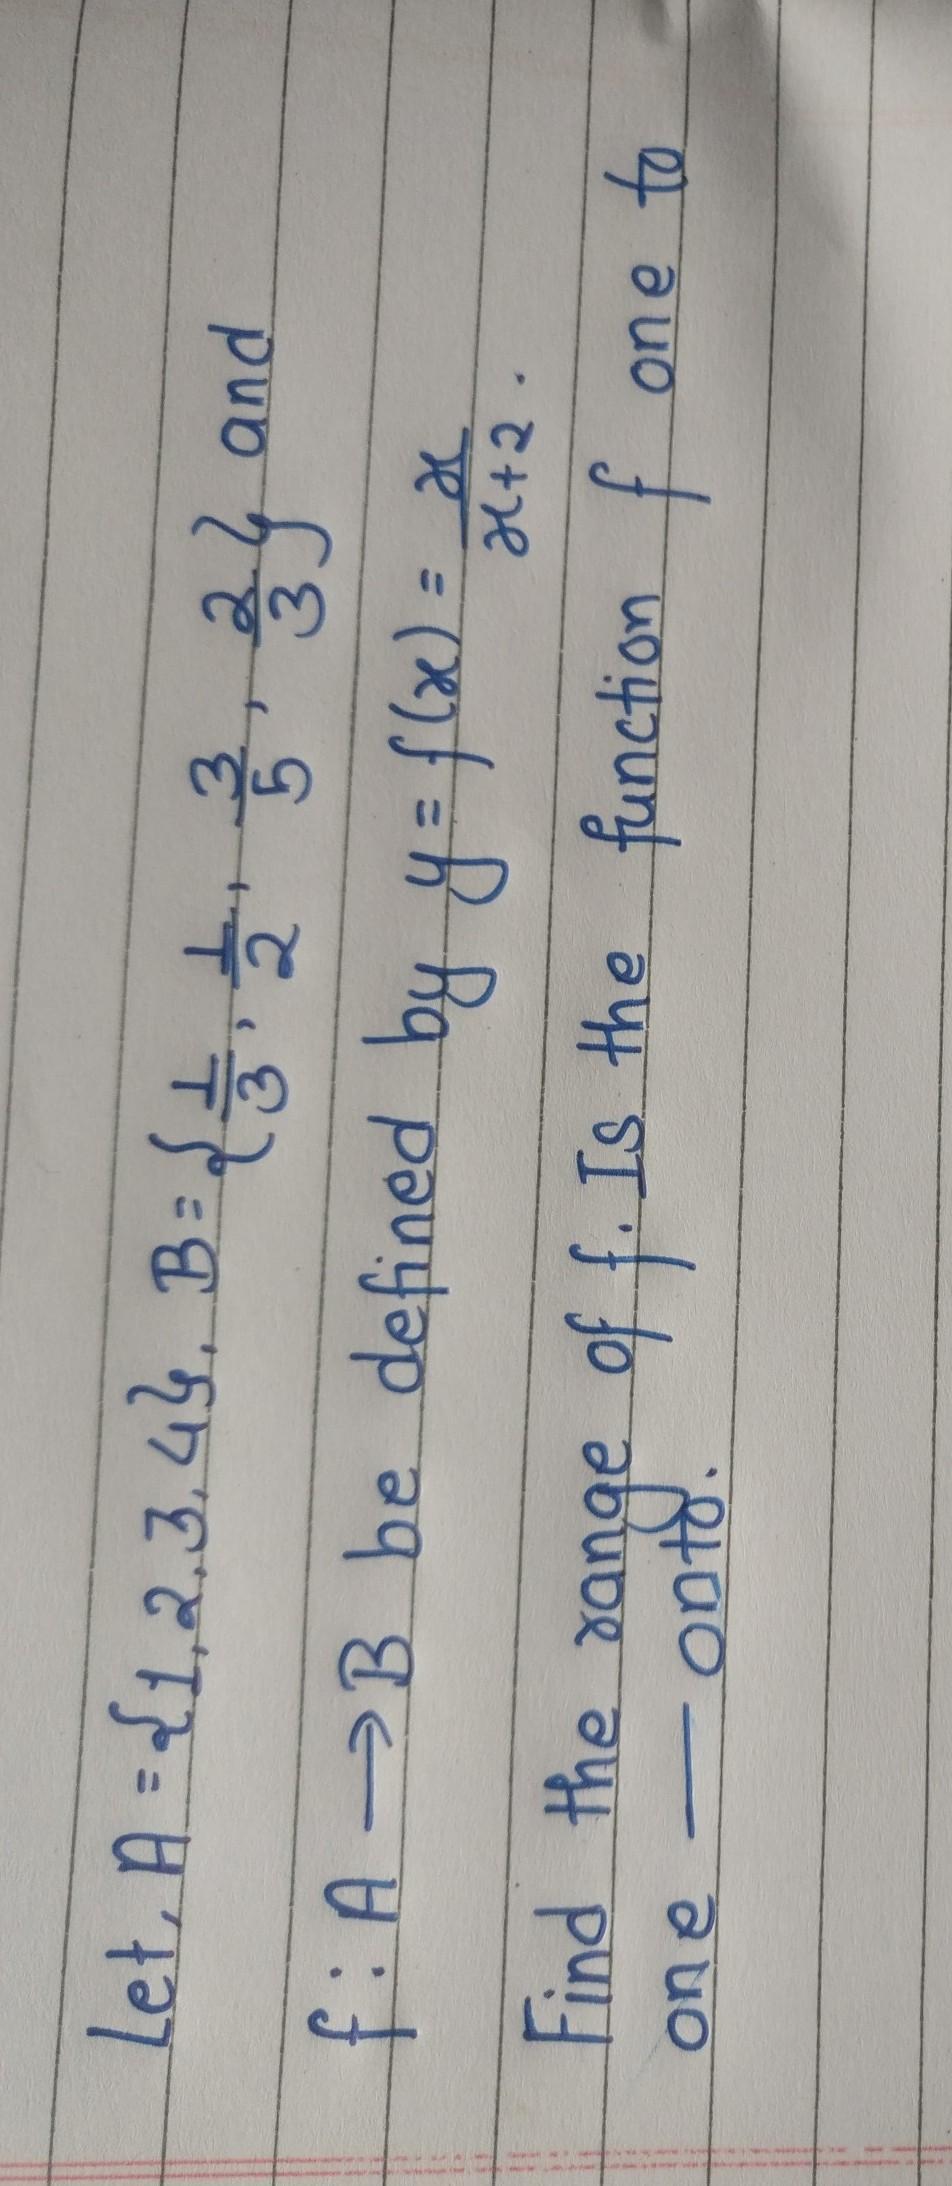 Let, A = {1, 2, 3, 4}, B = {1/3, 1/2, 3/5, 2/3} and
f : A → B be defined by y = f(x) = x/x+2.
Find the range of f. Is the function f one to
one — onto.